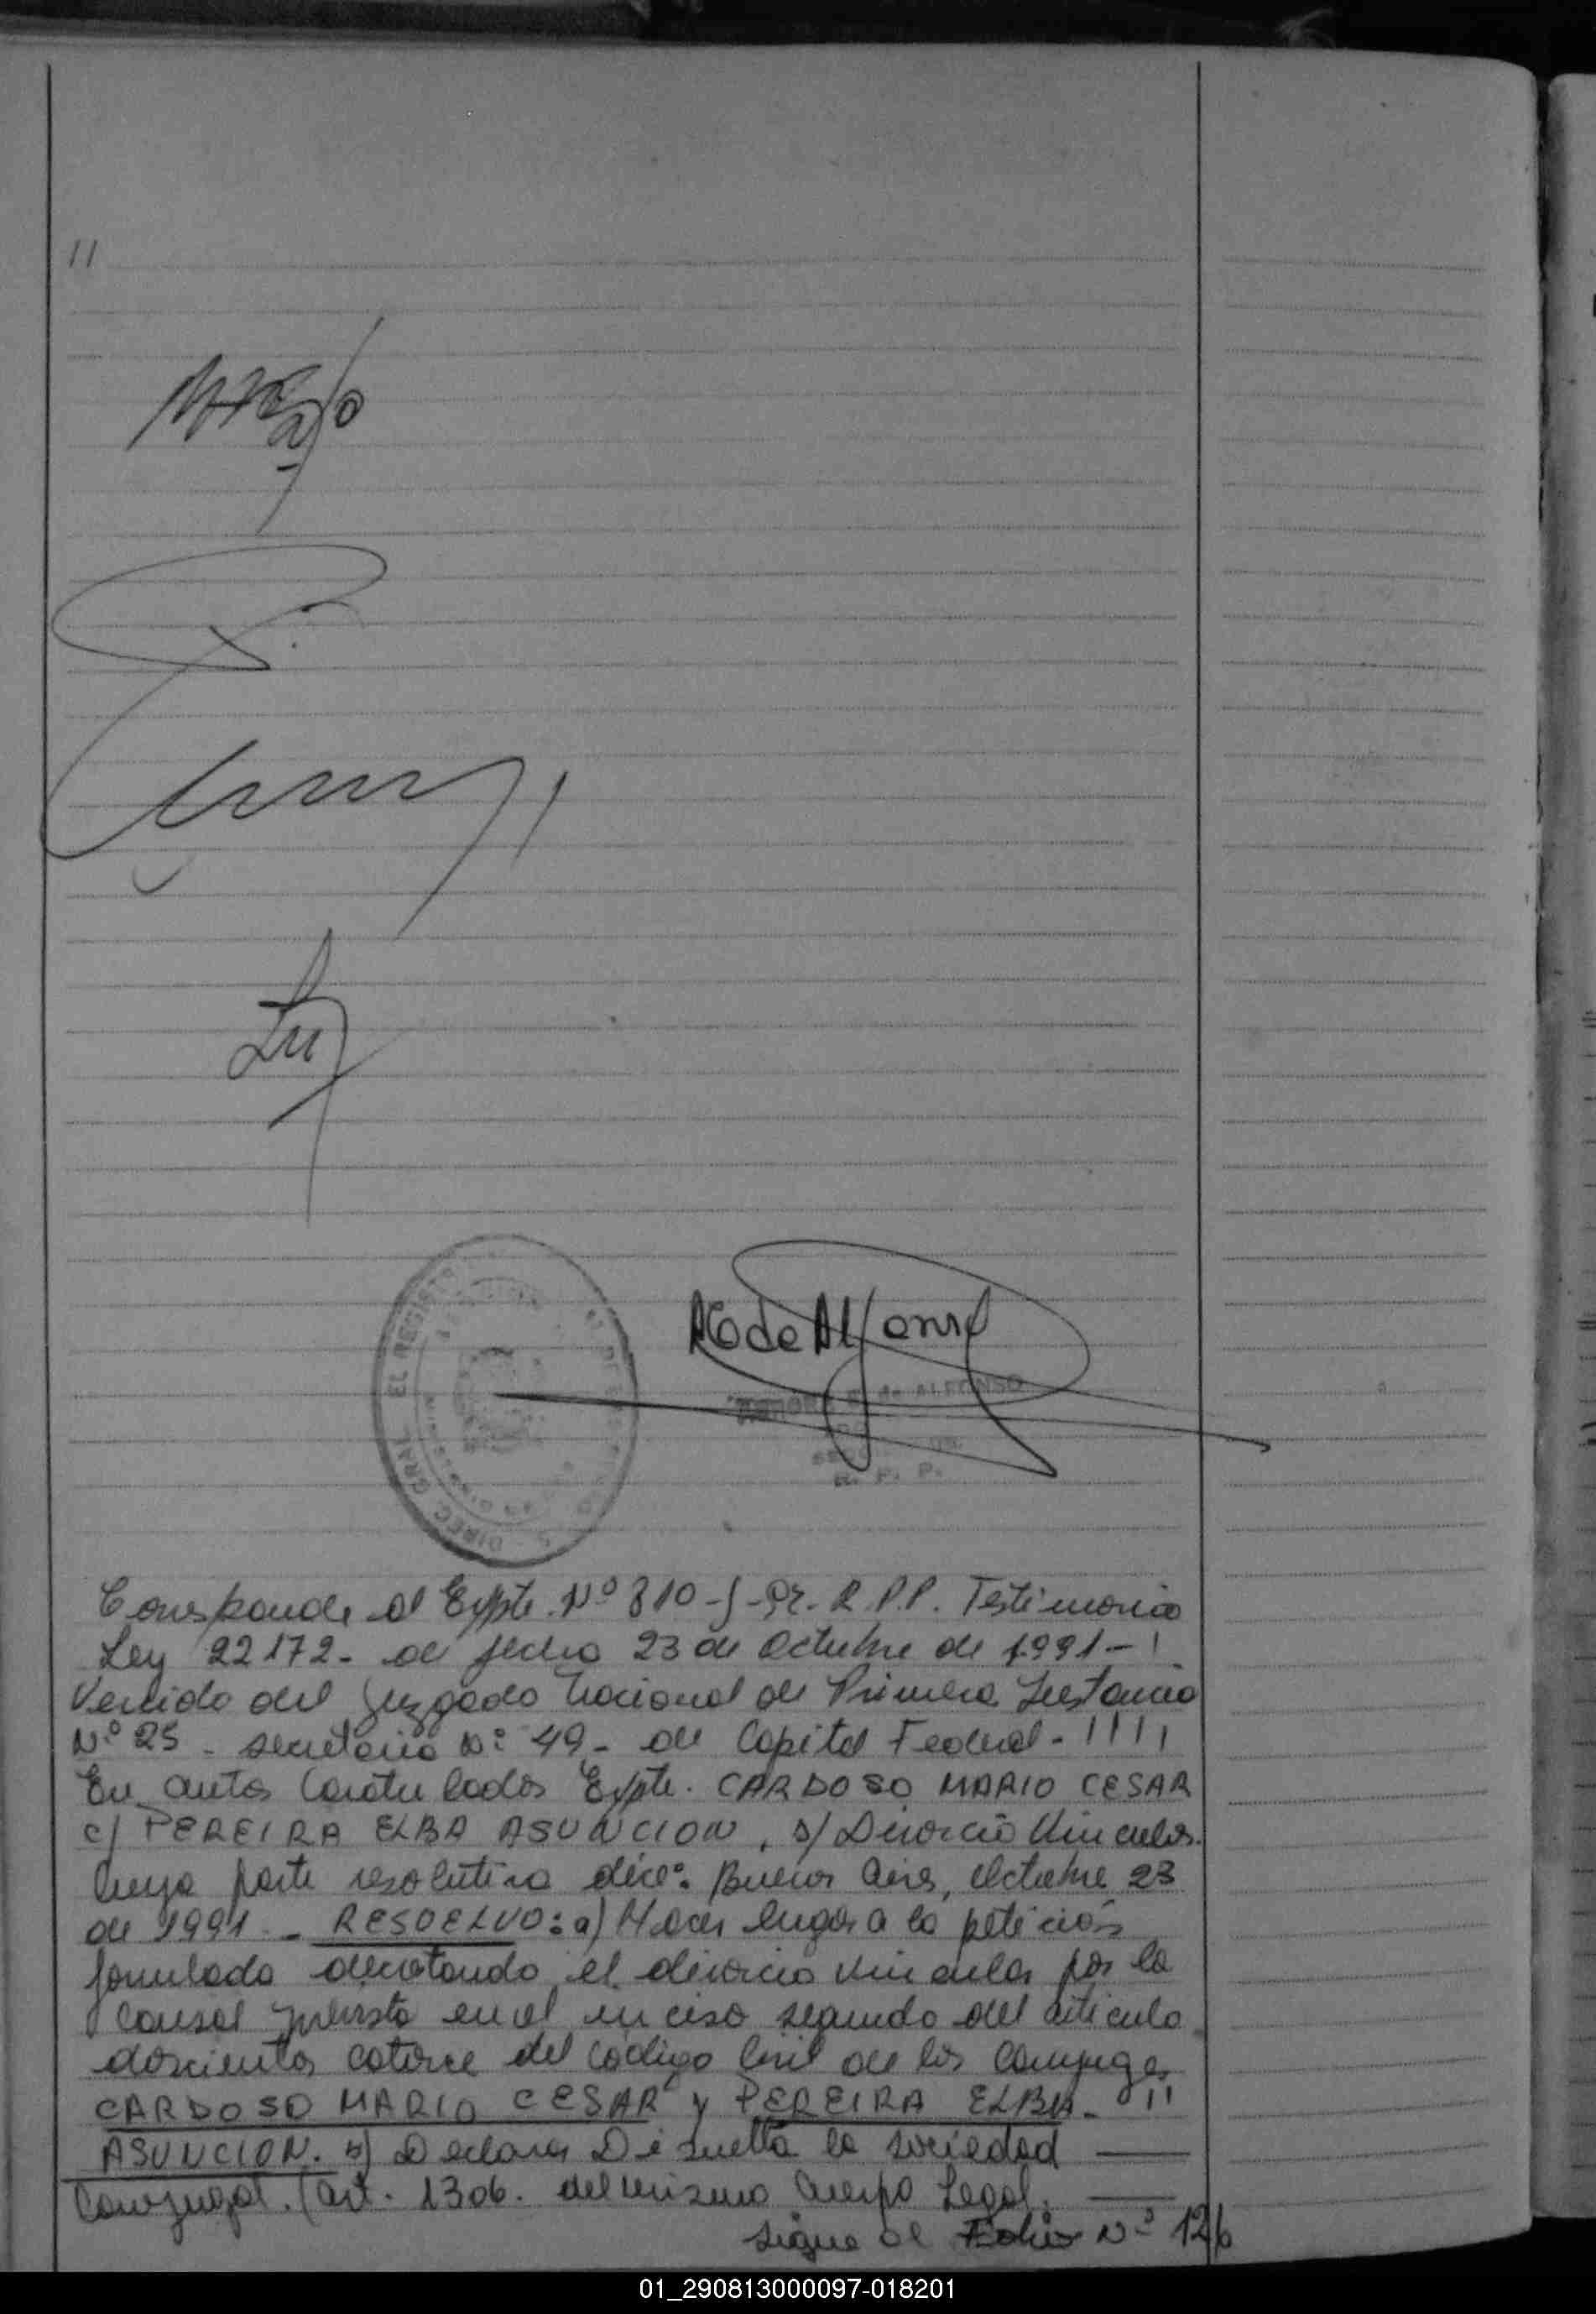 11
DIREC. GRAL. EL REGISTRO
de ALFONSO
R. P. P.
Corresponde al Expte. Nº 810-J-92. R.P.P. Testimonio
Ley 22172- de fecha 23 de Octubre de 1991-
Venido del Juzgado Nacional de Primera Instancia
Nº 25 - secretaria Nº 49- de Capital Federal-
En autos Caratulados Expte. CARDOSO MARIO CESAR
c/ PEREIRA ELBA ASUNCION, s/ Divorcio Vincular.
Cuya parte resolutiva dice: Buenos Aires, Octubre 23
de 1991.- RESUELVO: a) Hacer lugar a la petición
formulada decretando el divorcio vincular por la
causal prevista en el inciso segundo del artículo
doscientos catorce del Código Civil de los Conyuges
CARDOSO MARIO CESAR y PEREIRA ELBA-
ASUNCION. b) Declarar Disuelta la sociedad
Conyugal. (Art. 1306. del mismo Cuerpo Legal.
sigue al Folio Nº 126
01_290813000097-018201